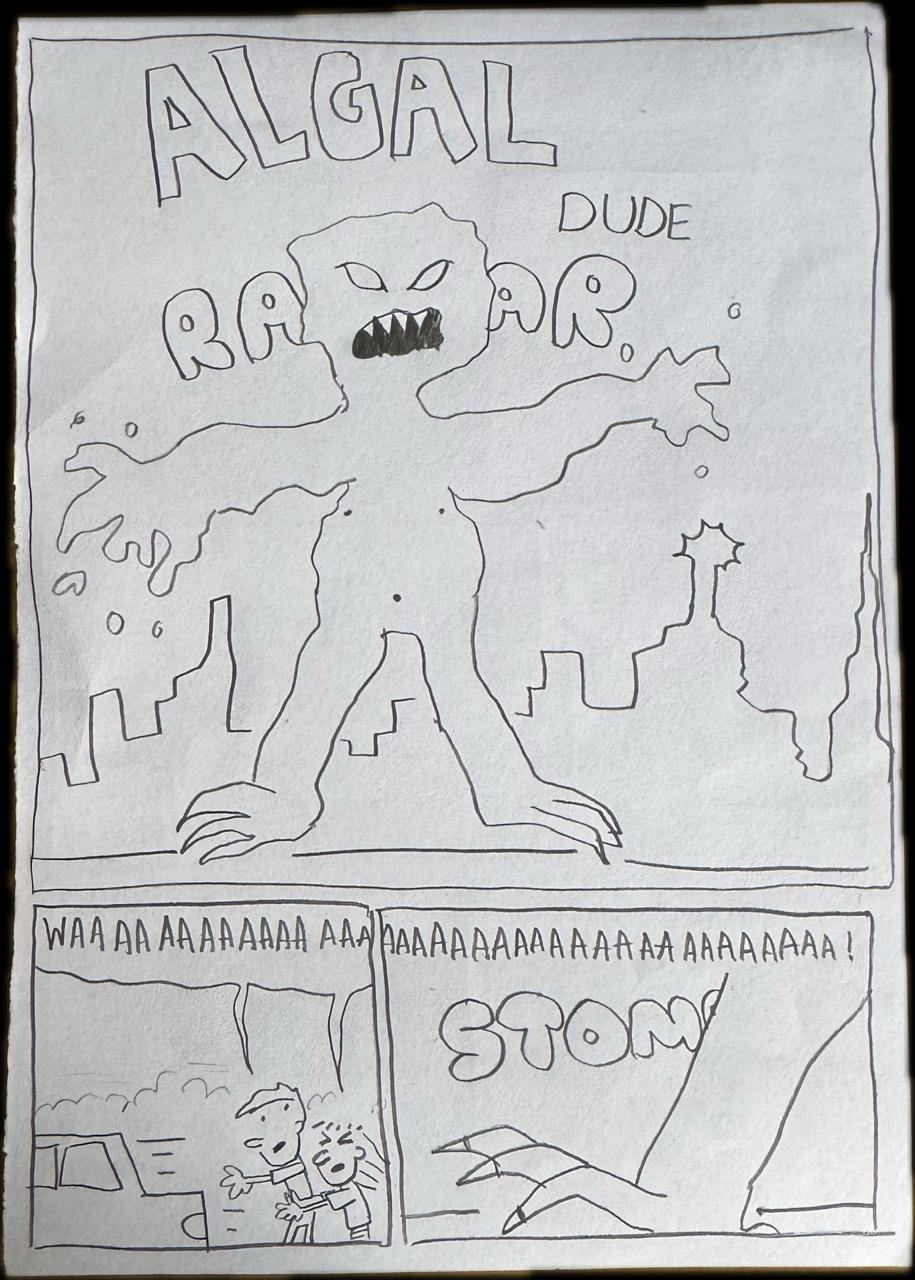 ALGAL
DUDE
RA AR
WAA AA AAAAAAAA AAA
AAAAAAAAAAAAAA AA AAAAAAAA!
STOM